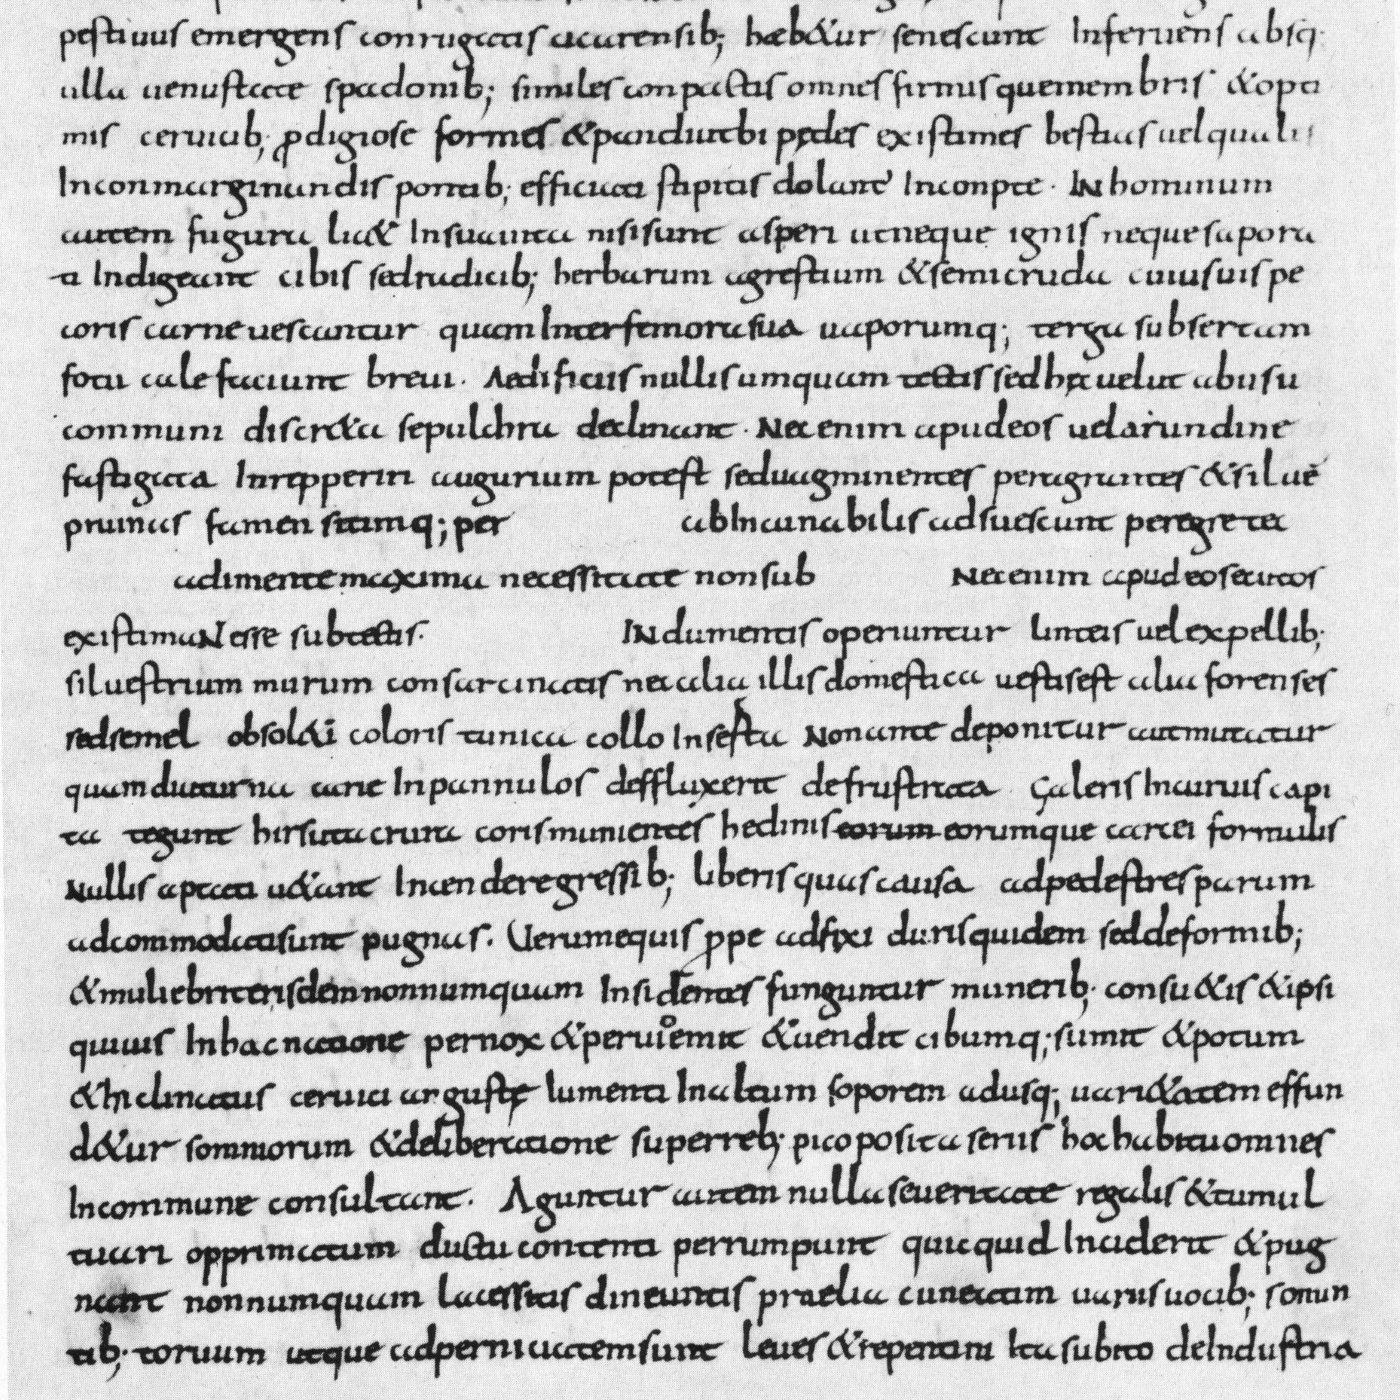 pestiuus emergens conrugatis cicurensib; hæb&ur senescunt Inferuens absq·
ulla uenustate spadonib; similes conpactis omnes firmisque membris &opi
mis ceruicib; ꝓdigiose formes &pandutabi pędes existimes bestias uelquali
Inconmarginandis pontib; efficiati stipitis dolant Inconpte · IN hominum
autem figura lic& Insuauita nisisunt asperi utneque ignis nequesapora
ti Indigeant cibis sedradicib; herbarum agrestium &semicruda cuiusuis pe
coris carne uescantur quam Inter femora sua uaporumq; terga subsertam
fotu calefaciunt breui · Aedificiis nullis umquam tectis sedhęc uelut abusu
communi discr&a sepulchra declinant · Nec enim apudeos uel arundine
fastigata Inrepperiri augurium potest seduagminentes peragrantes &siluę
pruinas famen sitimq; per ab Incunabilis adsuescunt peregre tec
adimente maxima necessitate non sub Nec enim apud eosecutos
existimaNt esse subtectis· INdumentis operiuntur linteis uel expellib;
siluestrium murum consarcinatis nec alia illis domestica uestisest alia forenses
sedsemel obsol&i coloris tunica collo Inserta Nonante deponitur autmutatur
quamdiuturna carie Inpannulos deffluxerit defrustrata Galeris Incuruis capi
ta tegunt hirsuta crura coris munientes hedinis eorum eorumque carcei formulis
Nullis aptati u&ant Incenderegressib; liberis quas causa adpedestres parum
adcommodatisunt pugnas. Uerumequis ꝓpe adfixi duris quidem seddeformib;
&muliebriterisdem nonnumquam Insidentes funguntur munerib; consu&is &ipsi
quiuis Inhac natione pernox &peruioemit &uendit cibumq; sumit &potum
&Inclinatus ceruici anguste Iumenti Inaltum soporem adusq; uari&atem effun
d&ur somniorum &deliberatione superreb; pico posita seriis hoc habitu omnes
Incommune consultant. Aguntur autem nulla seueritate regalis &tumul
tuari opprimatum ductu contenti perrumpunt quicquid Inciderit &pug
nant nonnumquam lacessitis dineuntis praelia cuneatim uariis uocib; sonan
tib; toruum utque adpernicitatem sunt leues &repentini Ita subito deIndustria